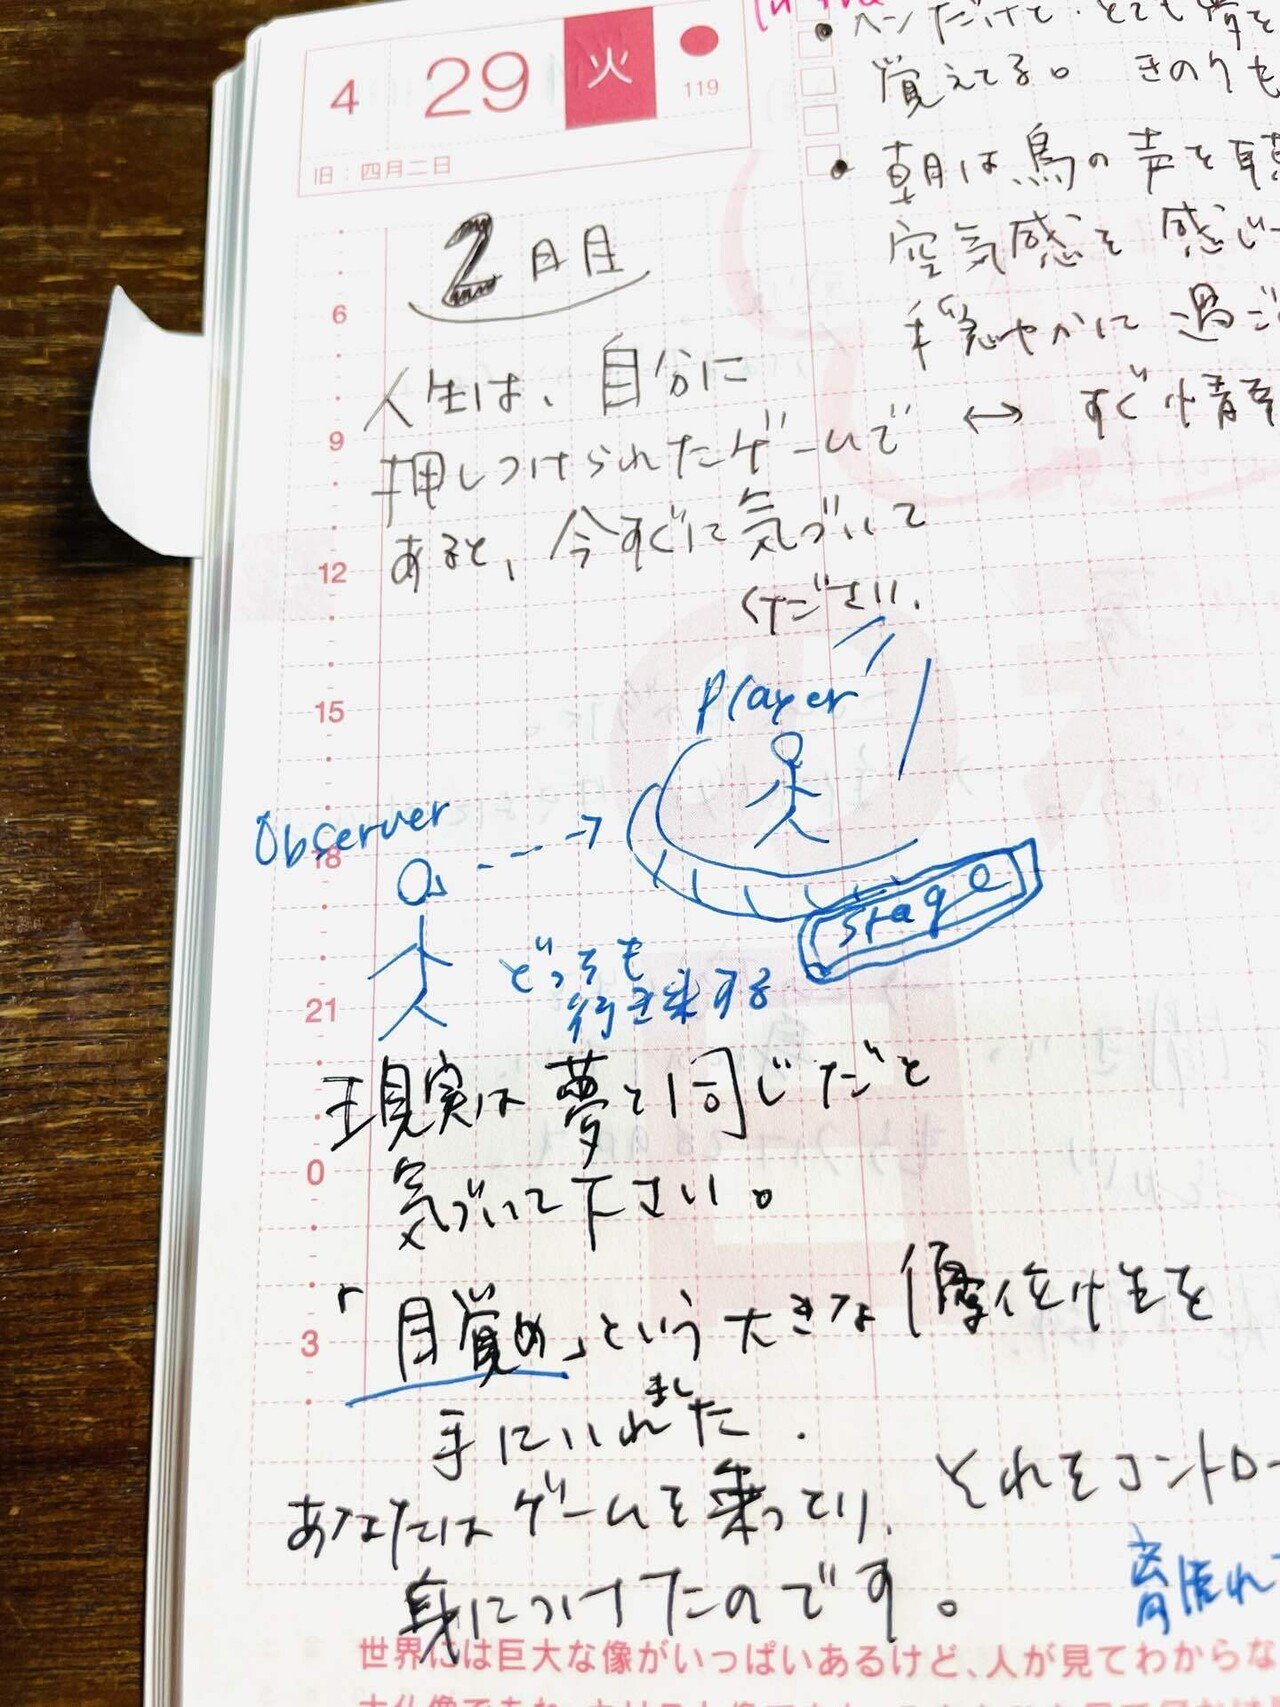 4 29 火
119
旧：四月二日
2日目
人生は、自分に
押しつけられたゲームで
あると、今すぐに気づいて
ください.
Player
Observer
stage
どっちも
行き来する
現実は夢と同じだと
気づいて下さい。
「目覚め」という大きな優位性を
手にいれました.
あなたはゲームを乗っとり、それをコントロー
身につけたのです。
覚えてる。きのうも
朝は鳥の声を
空気感を感じ
穏やかに過ご
↔ すぐ
6
9
12
15
18
21
0
3
世界には巨大な像がいっぱいあるけど、人が見てわからな